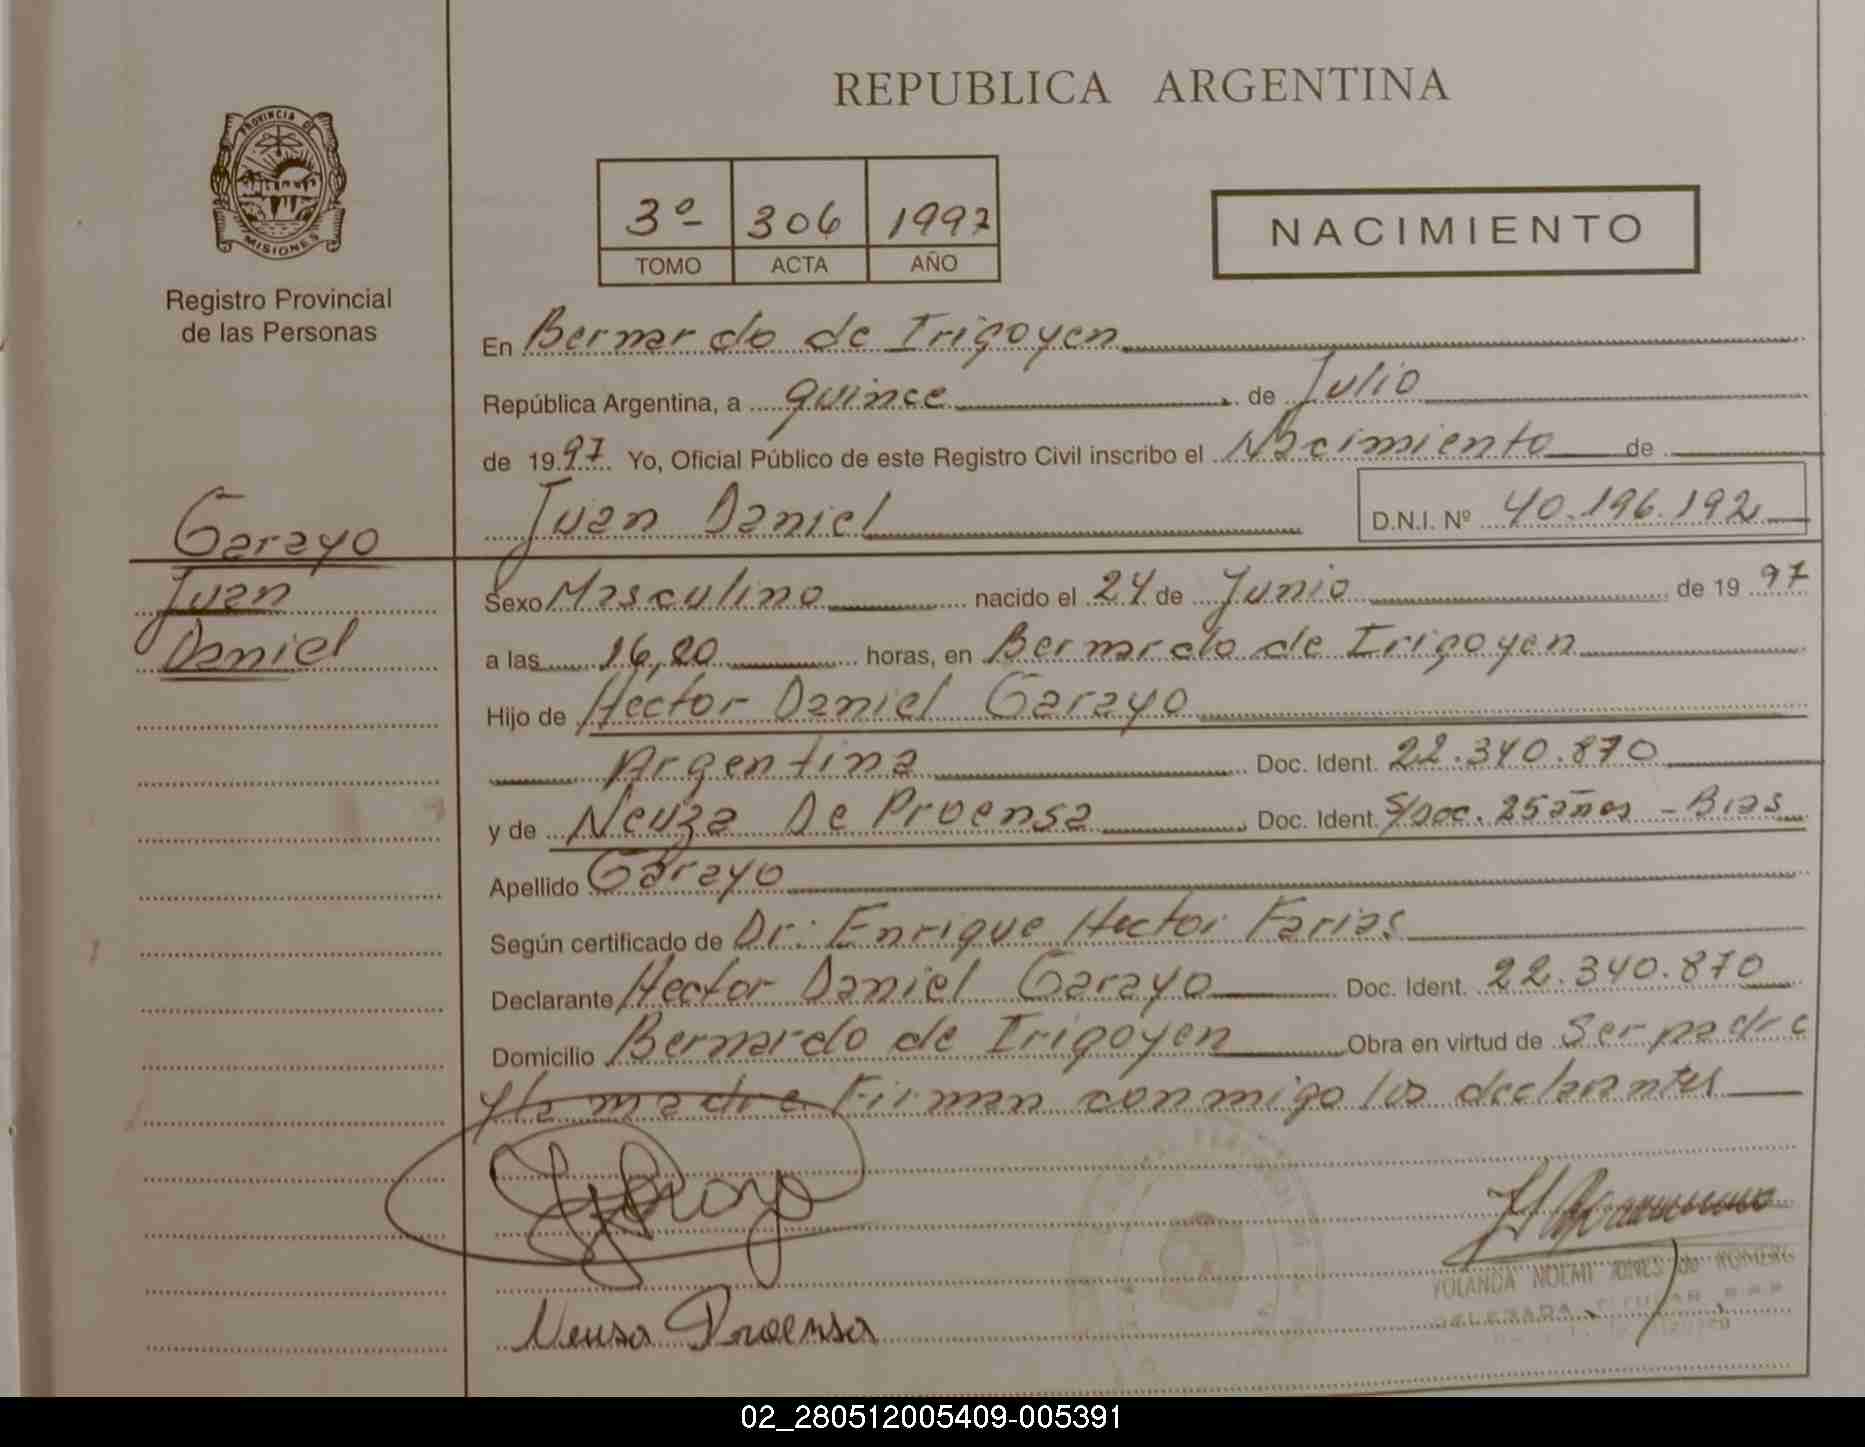 REPUBLICA ARGENTINA
PROVINCIA DE
MISIONES
Registro Provincial
de las Personas
3º 306 1997
TOMO ACTA AÑO
NACIMIENTO
En Bernardo de Irigoyen
República Argentina, a quince de Julio
de 1997 Yo, Oficial Público de este Registro Civil inscribo el Nacimiento de
Juan Daniel D.N.I. Nº 40.196.192
Garayo
Juan
Daniel
Sexo Masculino nacido el 24 de Junio de 1997
a las 16,20 horas, en Bernardo de Irigoyen
Hijo de Hector Daniel Garayo
Argentina Doc. Ident. 22.340.870
y de Neuza De Proensa Doc. Ident. S/Doc. 25 años - Bras
Apellido Garayo
Según certificado de Dr: Enrique Hector Farias
Declarante Hector Daniel Garayo Doc. Ident. 22.340.870
Domicilio Bernardo de Irigoyen Obra en virtud de Ser padre
y la madre Firman conmigo los declarantes
Neusa Proensa
YOLANDA NOEMI de ROMERO
DELEGADA TITULAR
02_280512005409-005391